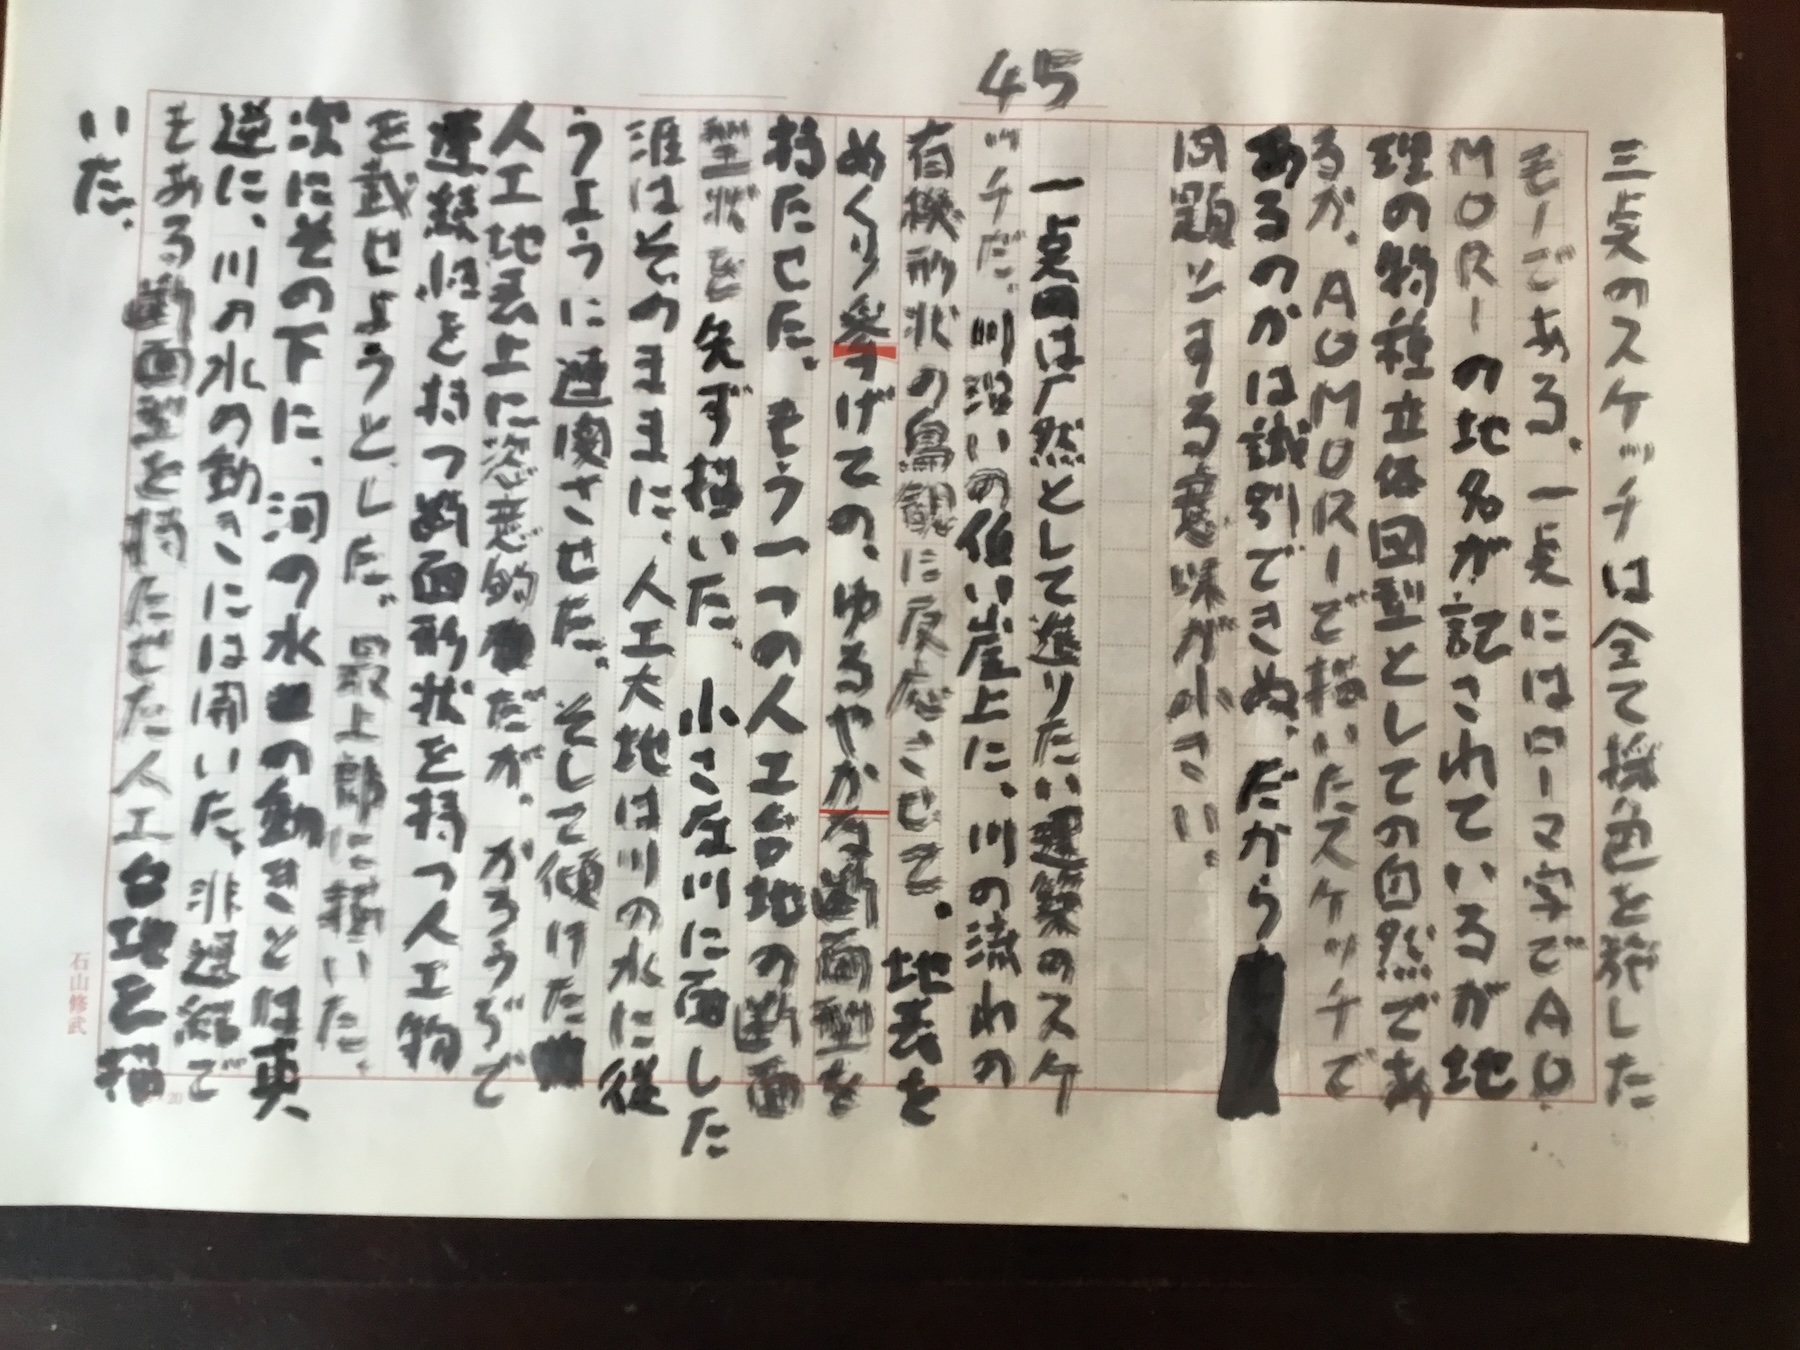 45
三点のスケッチは全て採色を施した
モノである。一点にはローマ字でAO
MORIの地名が記されているが地
理の物種立体図型としての自然であ
るが、AOMORIで描いたスケッチで
あるのかは識別できぬ。だから
問題とする意味が小さい。
一点目は厂然として進りたい建築のスケ
ッチだ。川沿いの低い崖上に、川の流れの
有機形状の鳥観に反応させて。地表を
めくり挙げての、ゆるやかな断面型を
持たせた。もう一つの人工台地の断面
型状を先ず描いた。小さな川に面した
涯はそのままに、人工大地は川の水に従
うように連関させた。そして傾けた
人工地表上に恣意的だが、かろうじで
連続性を持つ断面形状を持つ人工物
を載せようとした。最上部に描いた。
次にその下に、河の水の動きとは真
逆に、川の水の動きには開いた、非連続で
もある断面型を持たせた人工台地を描
いた。
石山修武
20